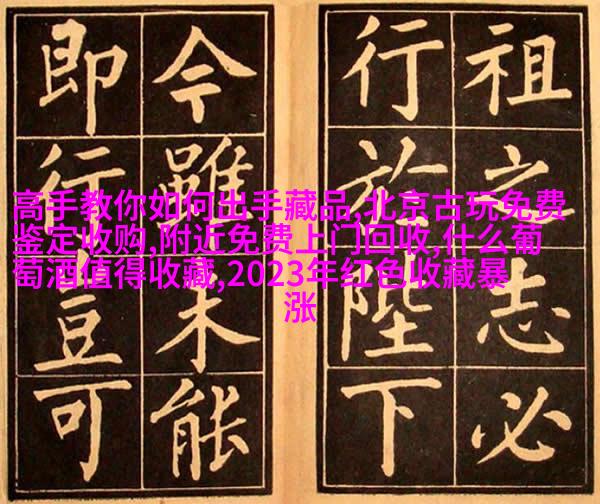 祖之志必
行於陛下
今雖未能
即行豈可
高手教你如何出手藏品,北京古玩免费
鉴定收购,附近免费上门回收,什么葡
萄酒值得收藏,2023年红色收藏暴
涨